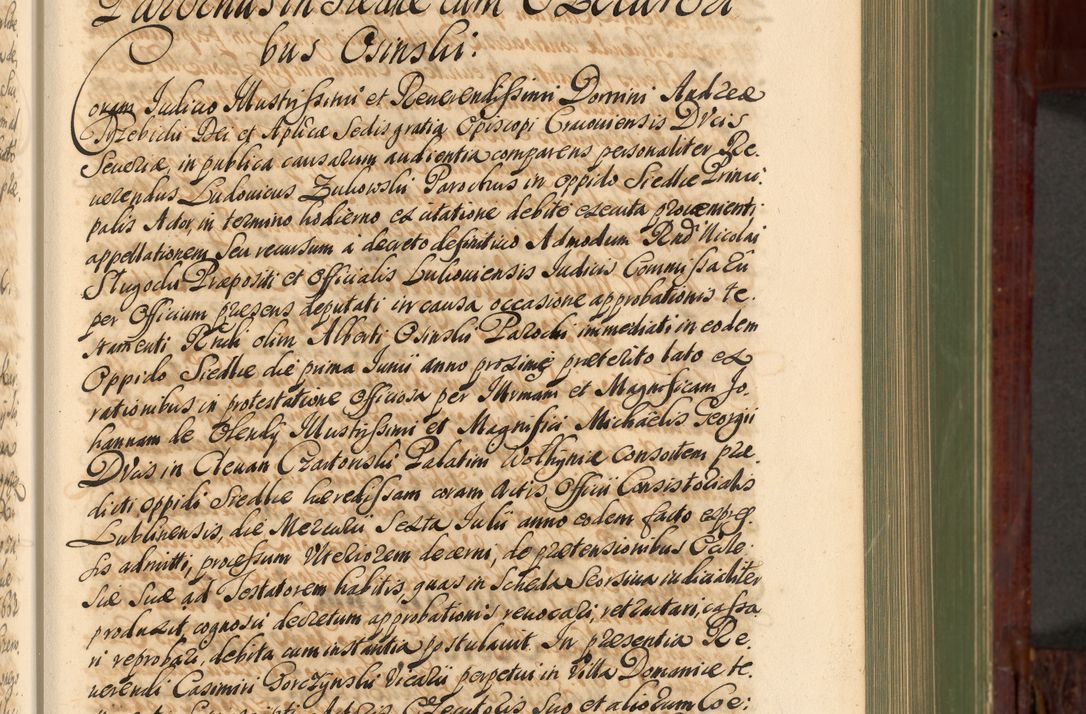 Parochus in Siedlce cum Executori
bus Osinskii:
Coram Iudicio Illustrissimi et Reverendissimi Domini Andreæ
Trzebicki Dei et Aplicæ Sedis gratia Episcopi Cracoviensis Ducis
Severiæ, in publica causarum audientia comparens personaliter Re-
verendus Ludovicus Zukowskii Parochus in oppido Siedlce Princi-
palis Actor, in termino hodierno ex citatione debite executa provementi
appellationem seu recursum a decreto definitivo Admodum Rndi Nicolai
Slugocki Præpositi et Officialis Lukoviensis Iudicis Commissarii
per Officium præsens deputati in causa occasione approbationis te-
stamenti Rndi olim Alberti Osinskii Parochi immediati in eodem
Oppido Siedlce die prima Iunii anno proxime præterito lato ex
rationibus in protestatione officiosa per Illrmam et Magnificam Jo-
hannam de Olendy Illustrissimi et Magnifici Michaelis Georgii
Ducis in Clevan Czartoriskii Palatini Wolhyniæ Consortem præ-
dicti oppidi Siedlce hæredissam coram Actis Officii Consistorialis
Lublinensis, die Mercurii Sexta Iulii anno eodem facto expres-
sis admitti, processum ulteriorem decerni, de prætensionibus Eccle-
siæ suæ ad Testatorem habitis, quas in Scheda Seorsiva iudicialiter
produxit, cognosci decretum approbationis revocari, retractari, cassa
ri reprobari, debita cum instantia postulavit. In præsentia Re-
verendi Casimiri Gorczynskii Vicarii perpetui in Villa Domanice te-
Executoris Suo et aliorum Coe: